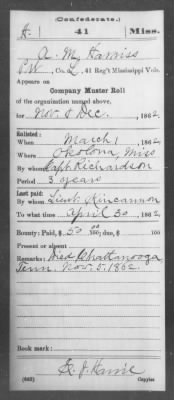 (Confederate.)
H. 41 Miss.
A. M. Harriss
Pvt., Co. L, 41 Reg't Mississippi Vols.
Appears on
Company Muster Roll
of the organization named above,
for Nov. & Dec., 1862.
Enlisted:
When March 1, 1862.
Where Okolona, Miss
By whom Capt. Richardson
Period 3 years
Last paid:
By whom Lieut. Kincannon
To what time April 30, 1862.
Bounty: Paid, $ 50 00/100; due, $ 100
Present or absent
Remarks: Died Chattanooga
Tenn. Nov. 5. 1862.
Book mark:
(642) Copyist.